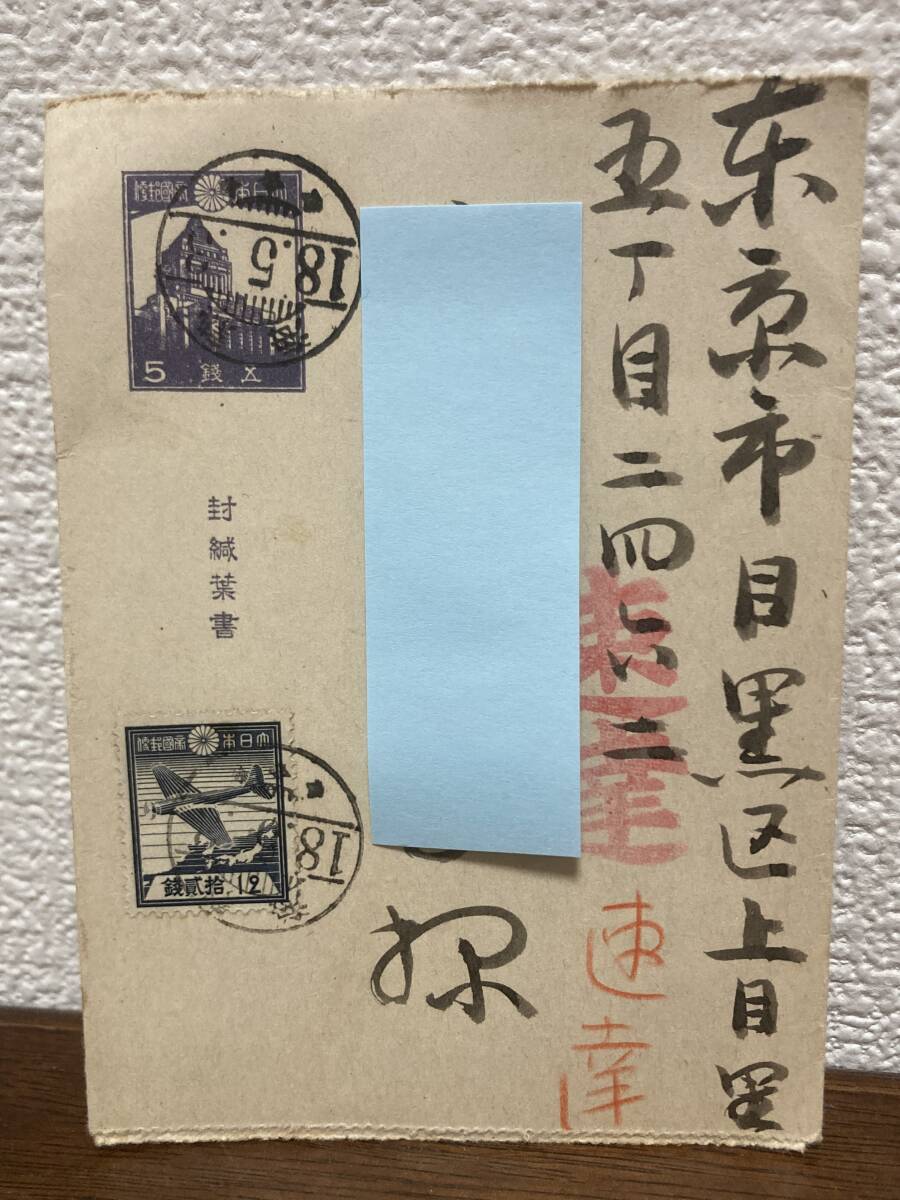 东京市目黒区上目黒
五丁目二四六二
速達
速達
様
大日本帝國郵便
5 錢 五
18.5
封緘葉書
大日本帝國郵便
12 拾貳錢
18